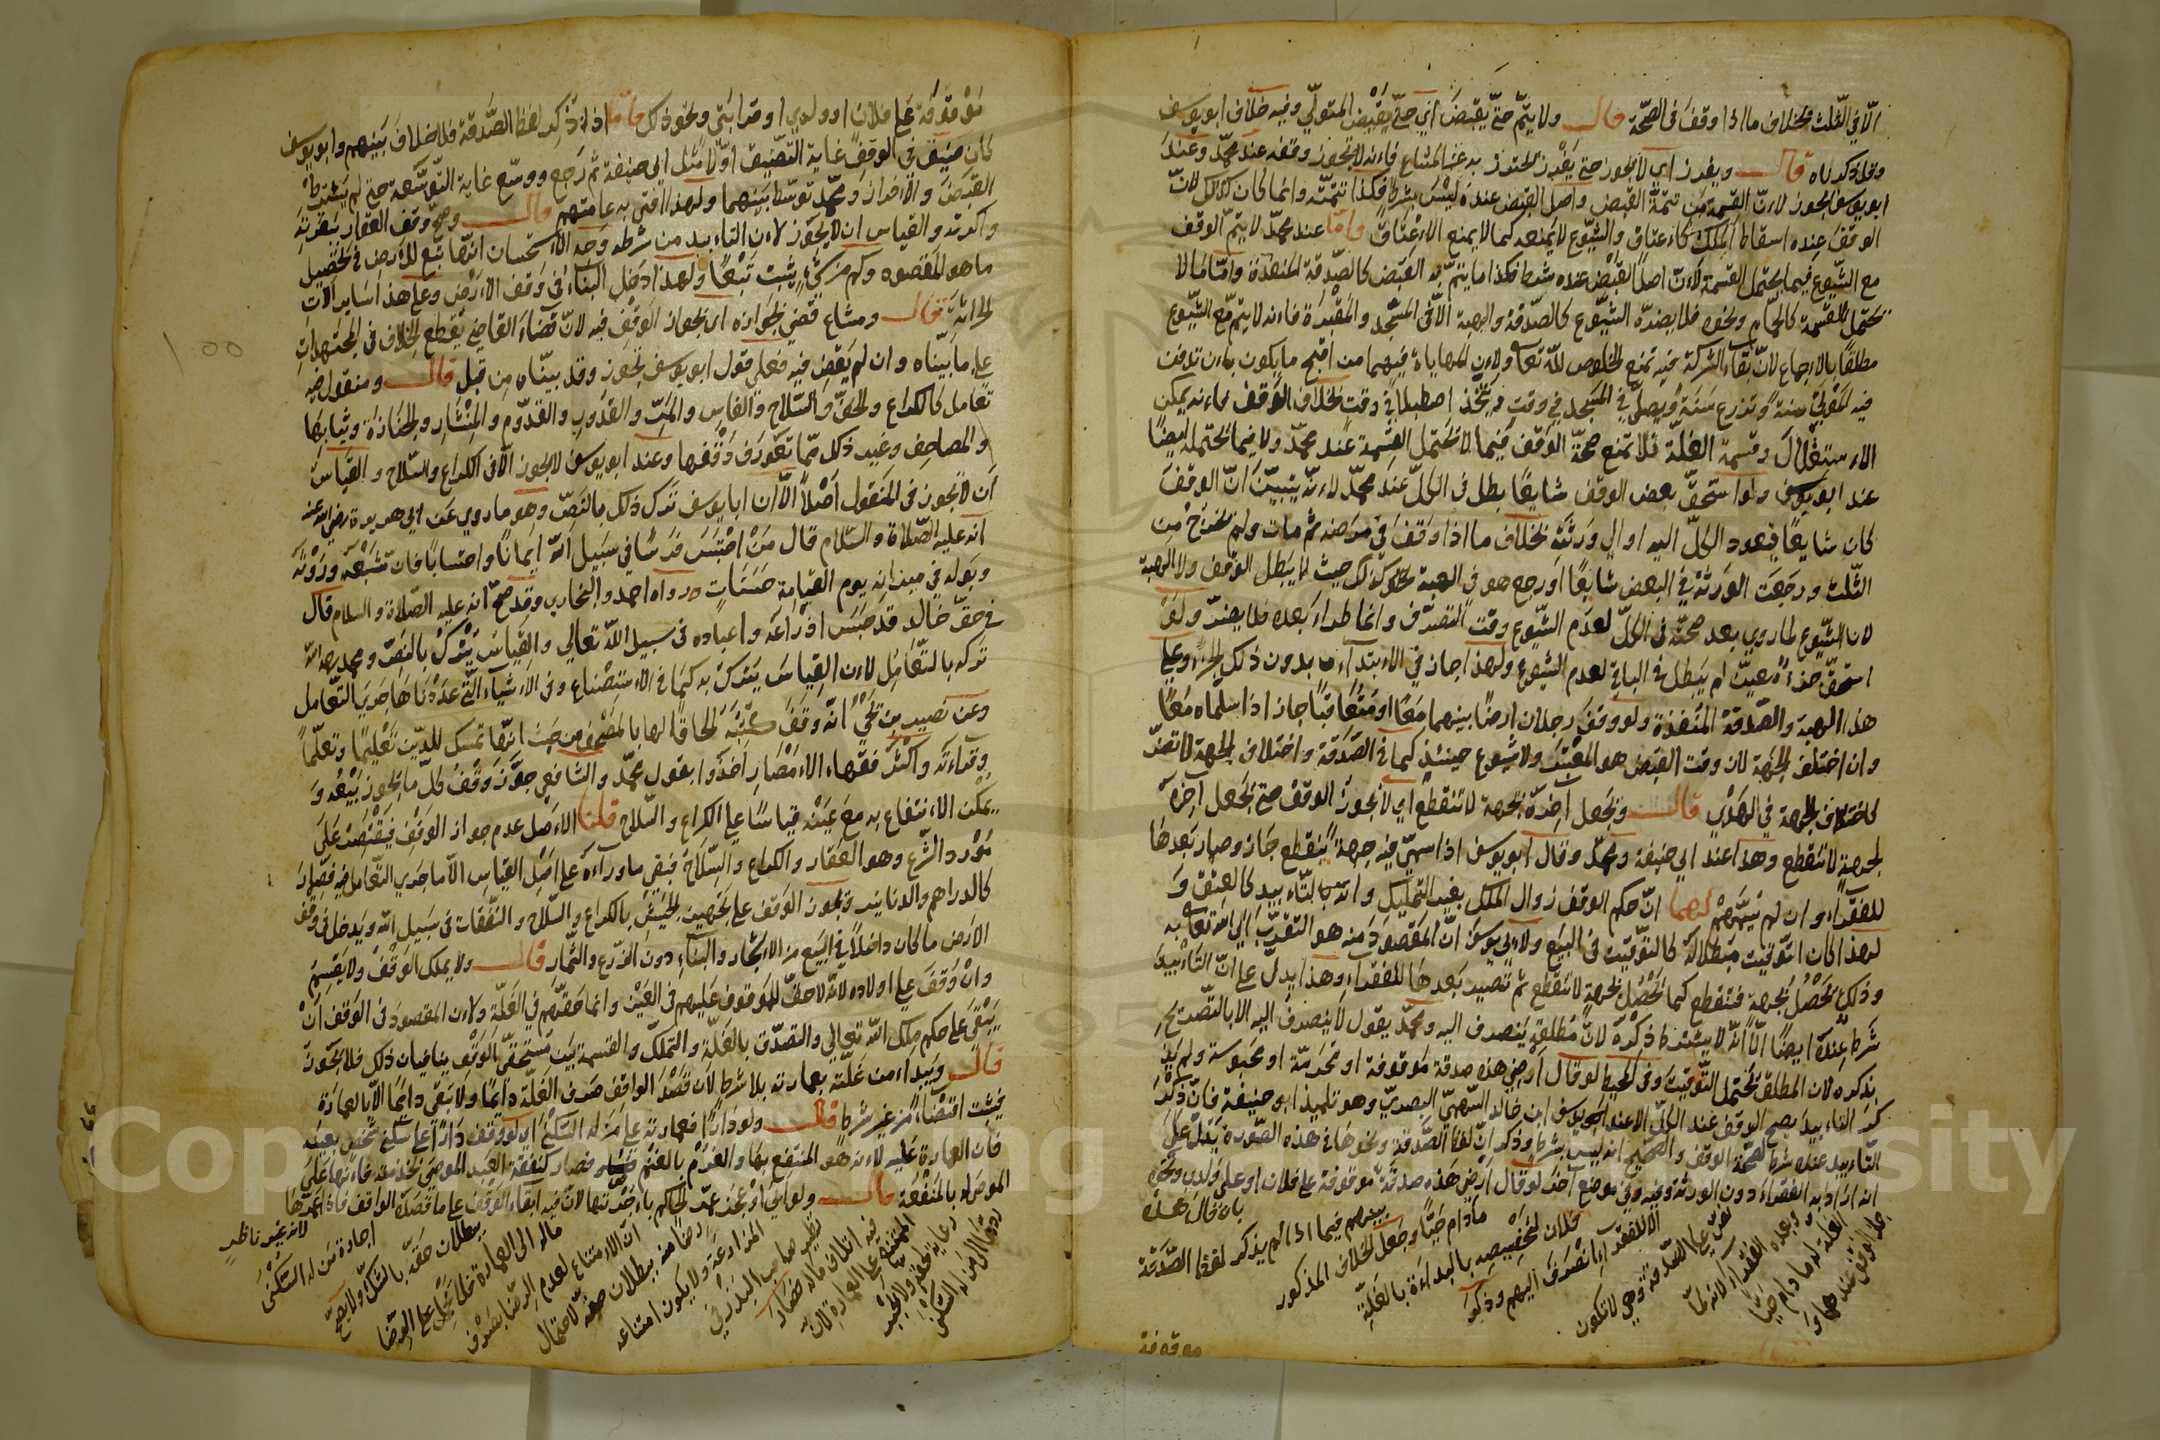 الّا في الثلث بخلاف ما اذا وقف في الصحّة قال ولا يتمّ حتّى يقبض اي حتّى يقبض المتولّي وفيه خلاف ابو يوسف
وقد ذكرناه قال ويفرز اي لا يجوز حتى يفرز يحترز به عن المشاع فانه لا يجوز وقفه عند محمّد وعند
ابو يوسف يجوز لانّ القسمة من تتمّة القبض واصل القبض عنده ليس بشرط فكذا تتمّته وانما كان كذلك لانّ
الوقف عنده اسقاط الملك كالاعتاق والشيوع لا يمنعه كما لا يمنع الاعتاق وامّا عند محمّد لا يتمّ الوقف
مع الشيوع فيما يحتمل القسمة لانّ اصل القبض عنده شرط فكذا ما يتمّ به القبض كالصّدقة المنفذة وامّا ما لا
يحتمل القسمة كالحمّام ونحوه فلا يضرّه الشيوع كالصّدقة والهبة الّا في المسجد والمقبرة فانه لا يتم مع الشيوع
مطلقًا بالاجماع لانّ بقاء الشركة فيه تمنع الخلوص للّه تعا ولان المهاياة فيهما من اقبح ما يكون بان تدفن
فيه الموتى سنة وتزرع سنة ويصلّى في المسجد في وقت ويتّخذ اصطبلًا في وقت بخلاف الوقف فانه يمكن
الاستغلال وقسمة الغلّة فلا تمنع صحّة الوقف فيما لا تحتمل القسمة عند محمّد ولا فيما تحتمله ايضًا
عند ابو يوسف ولو استحقّ بعض الوقف شايعًا بطل في الكلّ عند محمّد لانّه يتبيّن انّ الوقف
كان شايعًا فيعود الكلّ اليه او الي ورثته بخلاف ما اذا وقف في مرضه ثم مات ولم يخرج من
الثّلث ورجعت الورثة في البعض شايعًا او رجع هو في الهبة كذلك حيث لا يبطل الوقف ولا الهبة
لان الشيوع طاري بعد صحته في الكلّ لعدم الشيوع وقت التصرّف وانما طراء بعده فلا يضرّ ولو
استحقّ جزاء معيّن لم يبطل في الباقي لعدم الشيوع ولهذا جاز في الابتداء بدون ذلك الجزء وعلى
هذا الهبة والصّدقة المنفذة ولو وقف رجلان ارضًا بينهما معًا او متعاقبًا جاز اذا سلّماه معًا
وان اختلف الجهة لان وقت القبض هو المعتبر ولا شيوع حينئذ كما في الصّدقة واختلاف الجهة لا تضرّ
كاختلاف الجهة في الهدي قال ويجعل آخرة بجهة لا تنقطع اي لا يجوز الوقف حتى يجعل آخره
لجهة لا تنقطع وهذا عند ابي حنيفة ومحمّد وقال ابو يوسف اذا سمّى فيه جهة تنقطع جاز وصار بعدها
للفقراء وان لم يسمّهم لهما انّ حكم الوقف زوال الملك بغير التمليك وانه بالتأبيد كالعتق و
لهذا كان التّوقيت مبطلا له كالتّوقيت في البيع ولابي يوسف انّ المقصود منه هو التقرّب الي الله تعا به
وذلك يحصل بجهة تنقطع كما يحصل بجهة لا تنقطع ثم تصير بعدها للفقراء وهذا يدل على انّ التأبيد
شرط عنده ايضًا الّا انّه لا يشترط ذكره لانّ مطلقه ينصرف اليه ومحمّد يقول لا ينصرف اليه الا بالتّصريح
بذكره لان المطلق يحتمل التّوقيت وفي المحيط لو قال ارضي هذه صدقة موقوفة او محرّمة او محبوسة ولم يزد
التأبيد يصح الوقف عند الكلّ الا عند يوسف ابن خالد السّمتيّ البصريّ وهو تلميذ ابو حنيفة فانّ ذكر
التأبيد عنده شرط لصحّة الوقف والصّحيح انه ليس بشرط وذكر انّ لفظ الصّدقة ونحوها في هذه الصّورة يدلّ على
انه اراد به الفقراء دون الورثة وفيه وفي موضع آخر لو قال ارضي هذه صدقة موقوفة على فلان او على ولدي ونحوه
بان قال هذه
موقوفة
موقوفة على فلان او ولدي او قرابتي ونحو ذلك وامّا اذا ذكر لفظ الصّدقة فلا خلاف بينهم وابو يوسف
كان ضيّق في الوقف غاية التضييق اوّلا مثل ابي حنيفة ثم رجع ووسّع غاية التّوسعة حتى لم يشترط
القبض والافراز ومحمّد توسّط بينهما ولهذا افتى به عامتهم قال وصحّ وقف العقار ببقره
واكرته والقياس ان لا يجوز لان التأبيد من شرطه وجه الاستحسان انّها تبع للارض في تحصيل
ما هو المقصود وكم من شيء يثبت تبعًا ولهذا دخل البناء في وقف الارض وعلى هذا سائر آلات
الحراثة قال ومشاع قضي بجوازه اي بجواز الوقف فيه لانّ قضاء القاضي يقطع الخلاف في المجتهدات
على ما بيّناه وان لم يقض فيه فعلى قول ابو يوسف يجوز وقد بيّناه من قبل قال ومنقول فيه
تعامل كالكراع والخفّ والسّلاح والفاس والمرّ والقدور والقدّوم والمنشار والجنازة وثيابها
والمصاحف وغير ذلك ممّا تعورف وقفها وعند ابو يوسف لا يجوز الّا في الكراع والسّلاح والقياس
ان لا يجوز في المنقول اصلًا الّا ان ابا يوسف ترك ذلك بالنّصّ وهو ما روي عن ابي هريرة رضي الله عنه
انه عليه الصّلاة والسّلام قال من احتبس فرسًا في سبيل الله ايمانًا واحتسابًا فان شبعه وروثه
وبوله في ميزانه يوم القيامة حسنات رواه احمد والبخاري وقد صحّ انه عليه الصّلاة والسلام قال
في حقّ خالد قد حبس ادراعه واعتاده في سبيل اللّه تعالى والقياس يترك بالنّصّ ومحمد رحمه الله
تركه بالتّعامل لان القياس يترك به كما في الاستصناع وفي الاشياء الّتي عددناها جري التّعامل
وعن نصير بن يحيى انّه وقف كتبه لحاقًا لها بالمصحف من حيث انّها تمسك للدّين تعليمًا وتعلّمًا
وقراءة واكثر فقهاء الامصار اخذوا بقول محمّد والشافعي جوّز وقف كلّ ما يجوز بيعه و
يمكن الانتفاع به مع عينه قياسًا على الكراع والسّلاح قلنا الاصل عدم جواز الوقف فيقتصر على
مورد الشّرع وهو العقار والكراع والسّلاح فبقي ما وراءه على اصل القياس الّا ما جري التّعامل فيه فصار
كالدراهم والدنانير ويجوز الوقف على تجهيز الجيش بالكراع والسّلاح والنّفقات في سبيل الله ويدخل في وقف
الارض ما كان داخلًا في البيع من الاشجار والبناء دون الزّرع والثّمار قال ولا يملك الوقف ولا يقسم
وان وقف على اولاده لانّه لا حقّ للموقوف عليهم في العين وانما حقّهم في الغلّة ولان المقصود في الوقف ان
يبقى على حكم ملك الله تعالى والتصدّق بالغلّة والتملّك والقسمة بين مستحقّي الوقف ينافيان ذلك فلا يجوز
قال ويبداء من غلّته بعمارته بلا شرط لان قصد الواقف صرف الغلّة دائمًا ولا تبقى دائمًا الّا بالعمارة
فيثبت اقتضاء من غير شرط قال ولو دارًا فعمارته على من له السّكنى اي لو وقف دارًا على سكنى شخص بعينه
فان العمارة عليه لانه هو المنتفع بها والغرم بالغنم فصار كنفقة العبد الموصى بخدمته فانها على
الموصى له بالمنفعة قال ولو ابى او عجز عمّر الحاكم باجرتها لانّ فيه ابقاء الوقف على ما قصده الواقف فاذا عمّرها